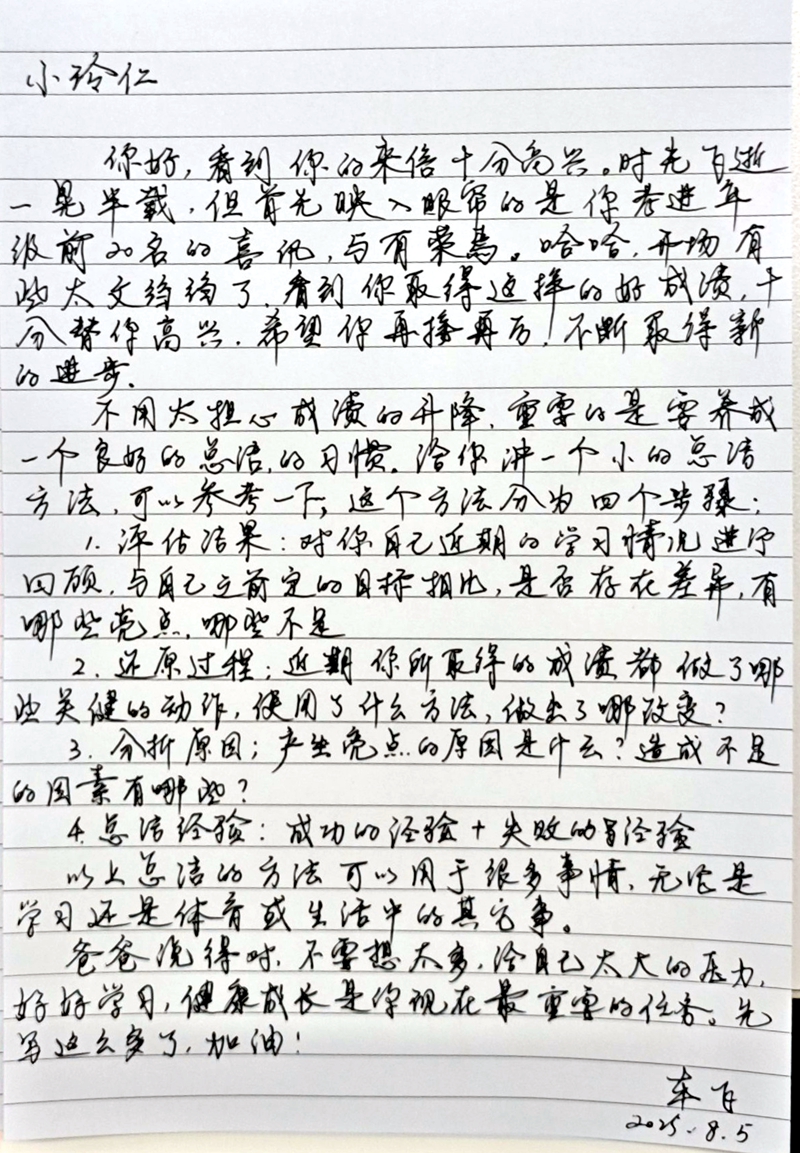 小玲仁
你好，看到你的来信十分高兴。时光飞逝
一晃半载，但首先映入眼帘的是你考进年
级前20名的喜讯，与有荣焉。哈哈，开场有
些太文绉绉了，看到你取得这样的好成绩，十
分替你高兴，希望你再接再厉，不断取得新
的进步。
不用太担心成绩的升降，重要的是要养成
一个良好的总结的习惯。给你讲一个小的总结
方法，可以参考一下，这个方法分为四个步骤：
1. 评估结果：对你自己近期的学习情况进行
回顾，与自己之前定的目标相比，是否存在差异，有
哪些亮点，哪些不足
2. 还原过程：近期你所取得的成绩都做了哪
些关健的动作，使用了什么方法，做出了哪改变？
3. 分析原因：产生亮点的原因是什么？造成不足
的因素有哪些？
4. 总结经验：成功的经验+失败的经验
以上总结的方法可以用于很多事情，无论是
学习还是体育或生活中的其它事。
爸爸说得对，不要想太多，给自己太大的压力，
好好学习，健康成长是你现在最重要的任务。先
写这么多了，加油！
2025.8.5